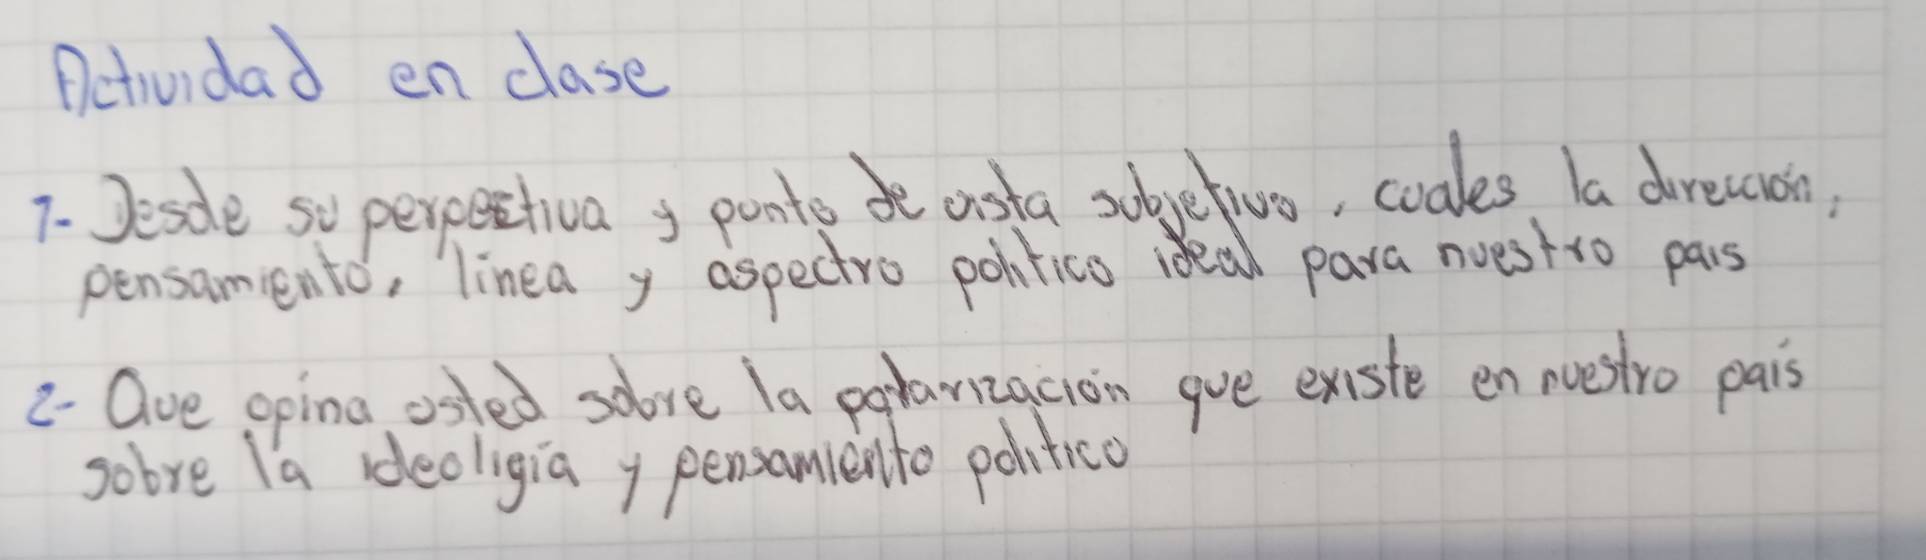 Actividad en clase
1- Desde su perpectiva y punto de vista subjetivo, cuales la dirección,
pensamiento, línea y aspectro politico ideal para nuestro pais
2- Que opina usted sobre la polarización que existe en nuestro país
sobre la ideoligía y pensamiento político